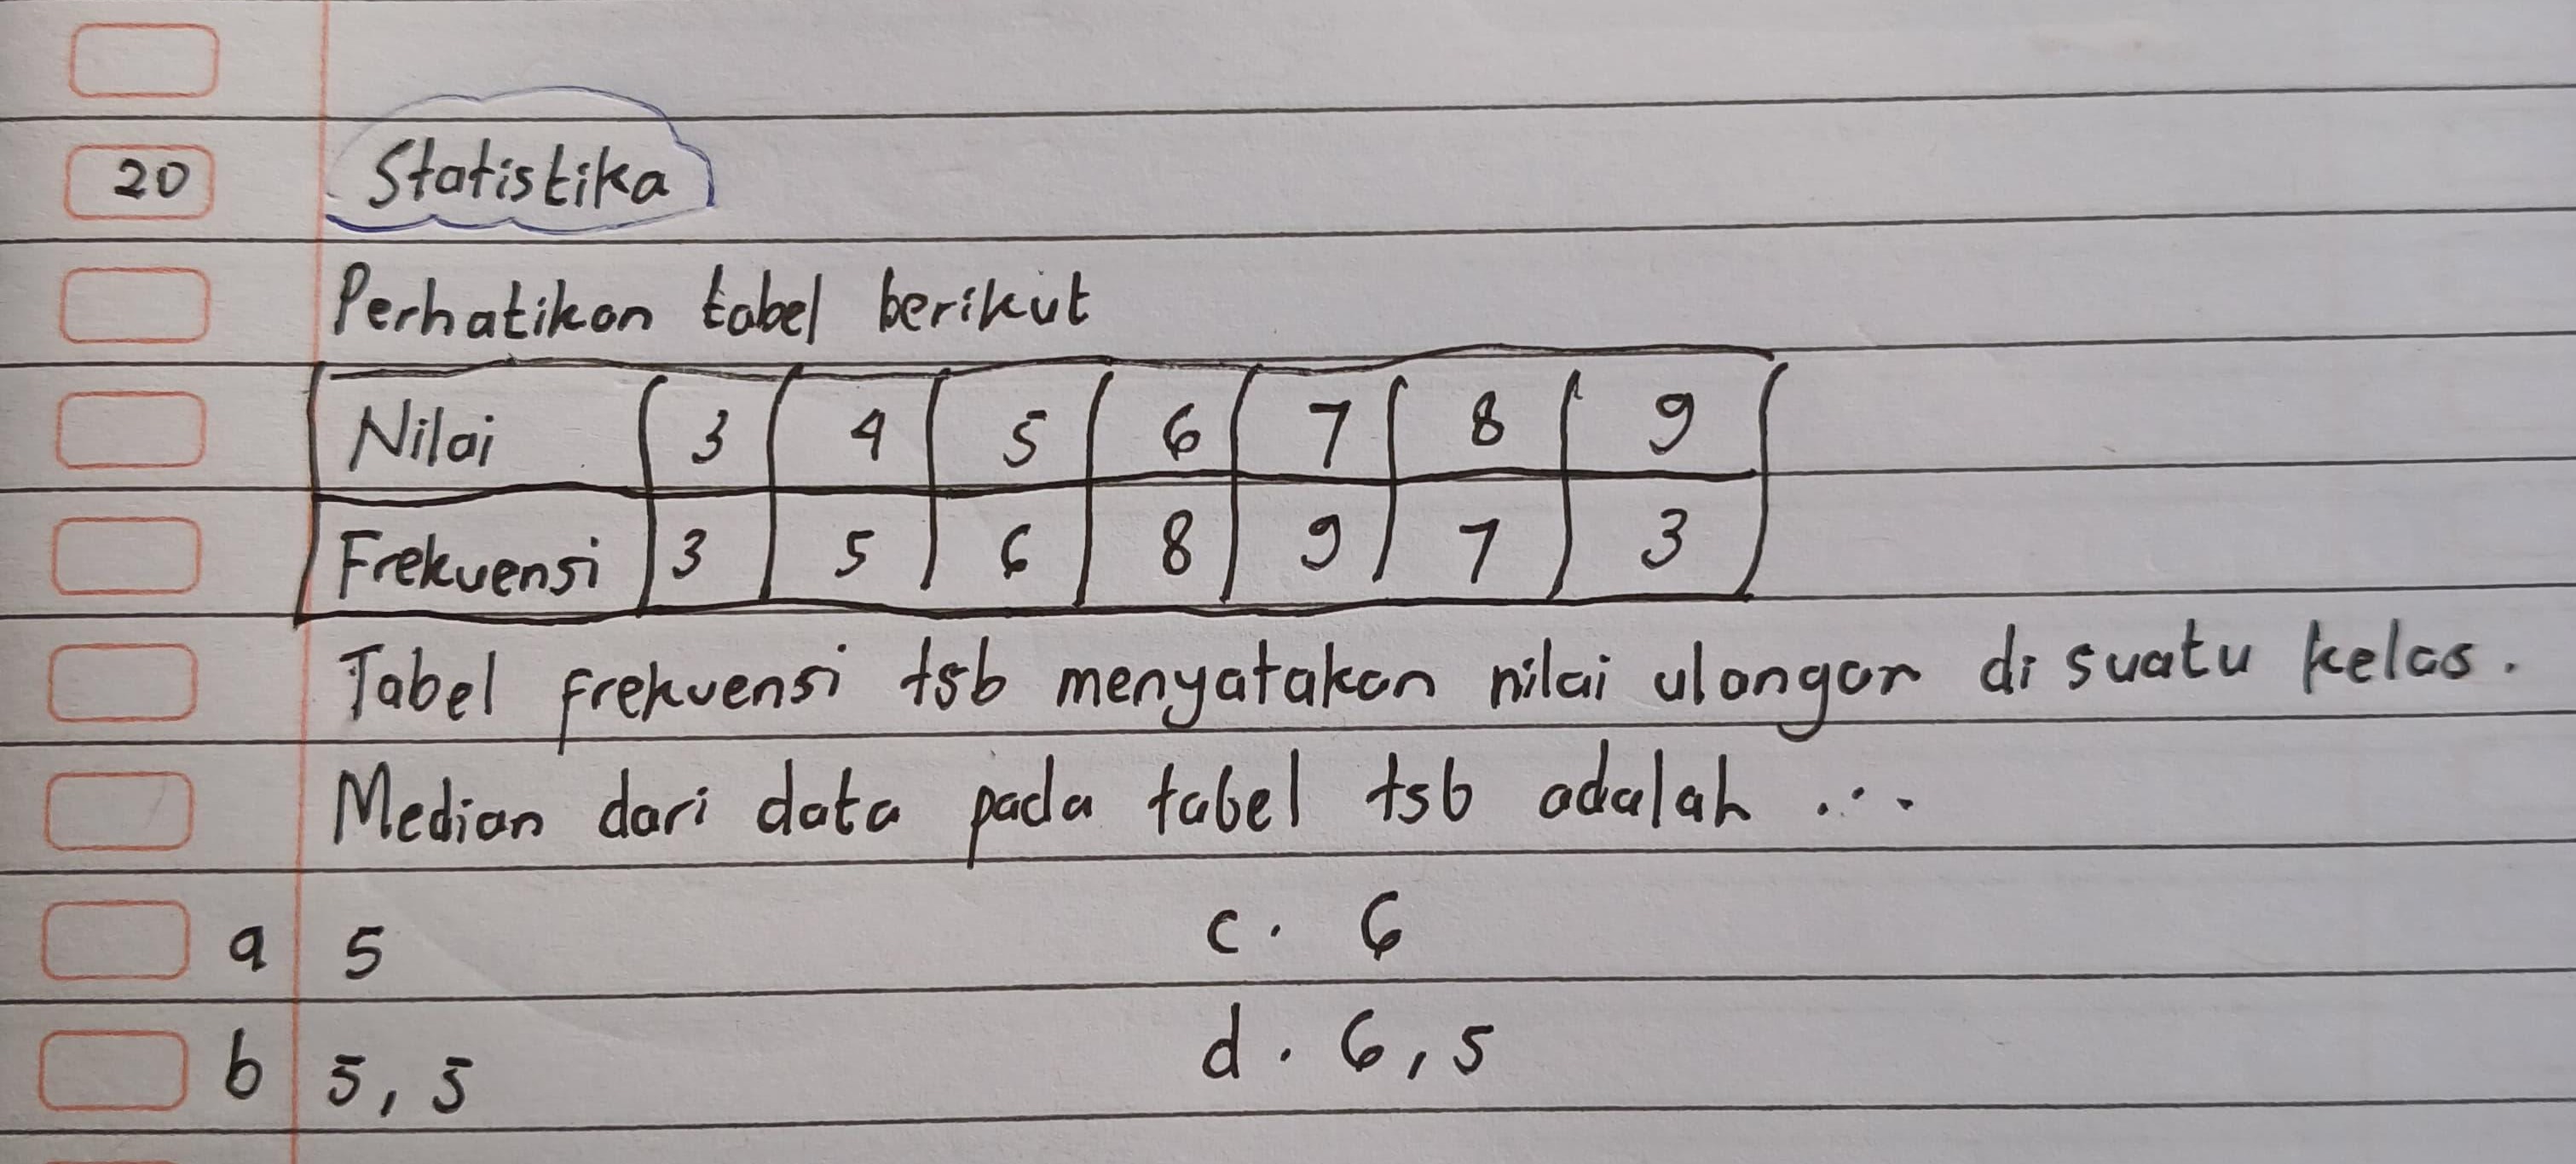 20 Statistika
Perhatikan tabel berikut
Nilai 3 4 5 6 7 8 9
Frekuensi 3 5 6 8 9 7 3
Tabel frekuensi tsb menyatakan nilai ulangan di suatu kelas.
Median dari data pada tabel tsb adalah ...
a 5 c. 6
b 5,5 d. 6,5